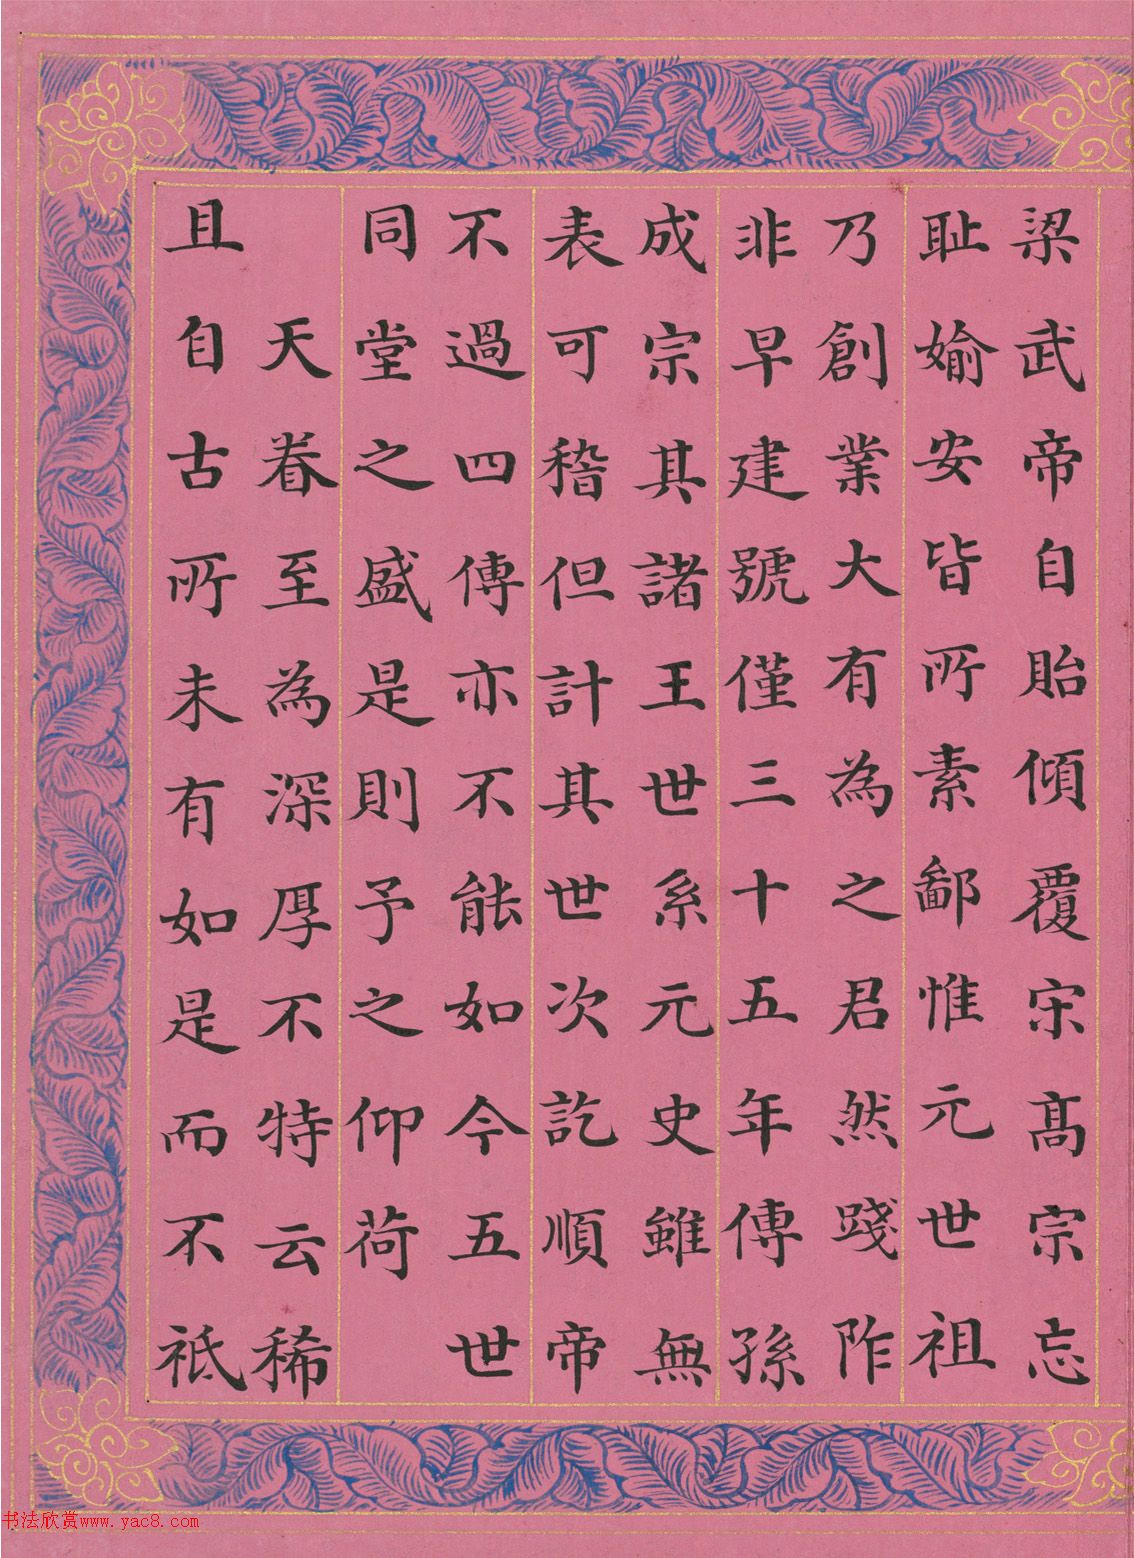 梁武帝自貽傾覆宋髙宗忘
耻婾安皆所素鄙惟元世祖
乃創業大有為之君然踐阼
非早建號僅三十五年傳孫
成宗其諸王世系元史雖無
表可稽但計其世次訖順帝
不過四傳亦不能如今五世
同堂之盛是則予之仰荷
天眷至為深厚不特云稀
且自古所未有如是而不祗
书法欣赏www.yac8.com